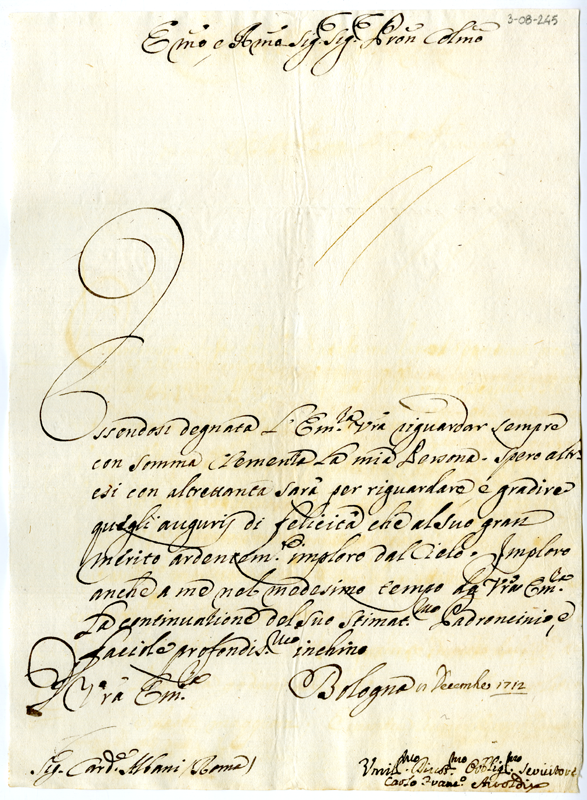 3-08-245
E.mo e R.mo Sig.r Sig.r Pron Colmo
Essendosi degnata L'Em.za Vrã riguardar sempre
con somma Clemenza La mia Persona. Spero altr:
esi con altrettanta sarà per riguardare, e gradire
quegli augurij di felicità che al suo gran
merito ardentem.te imploro dal Cielo. Imploro
anche a me nel medesimo tempo da Vrã Em.za
La continuazione del suo stimat.mo Padrocinio, e
faciole profondis.mo inchino
Di Vrã Em.za
Bologna Decembre 1712
Sig.r Card.le Albani (Roma)
Umil.mo Divot.mo Obblig.mo Servitore